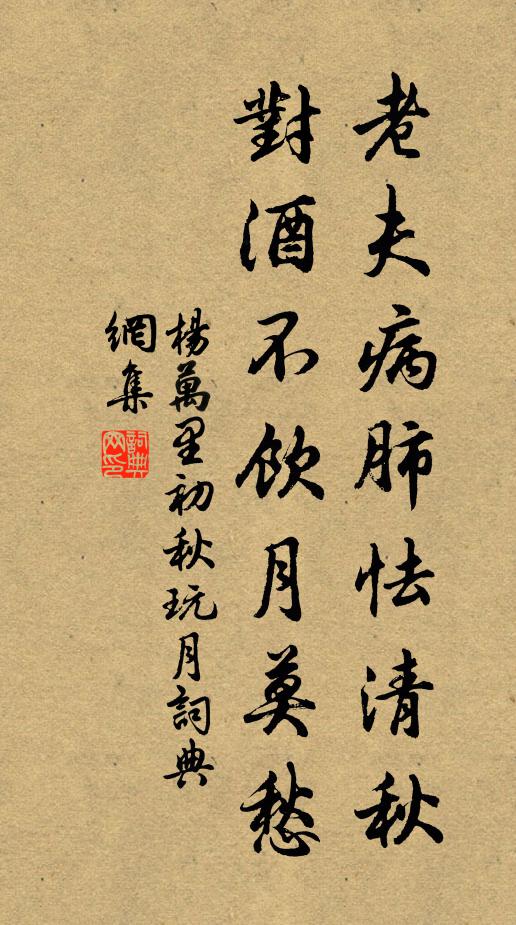 老夫病肺怯清秋
對酒不飲月莫愁
楊萬里初秋玩月詞典
網集
詞典網印